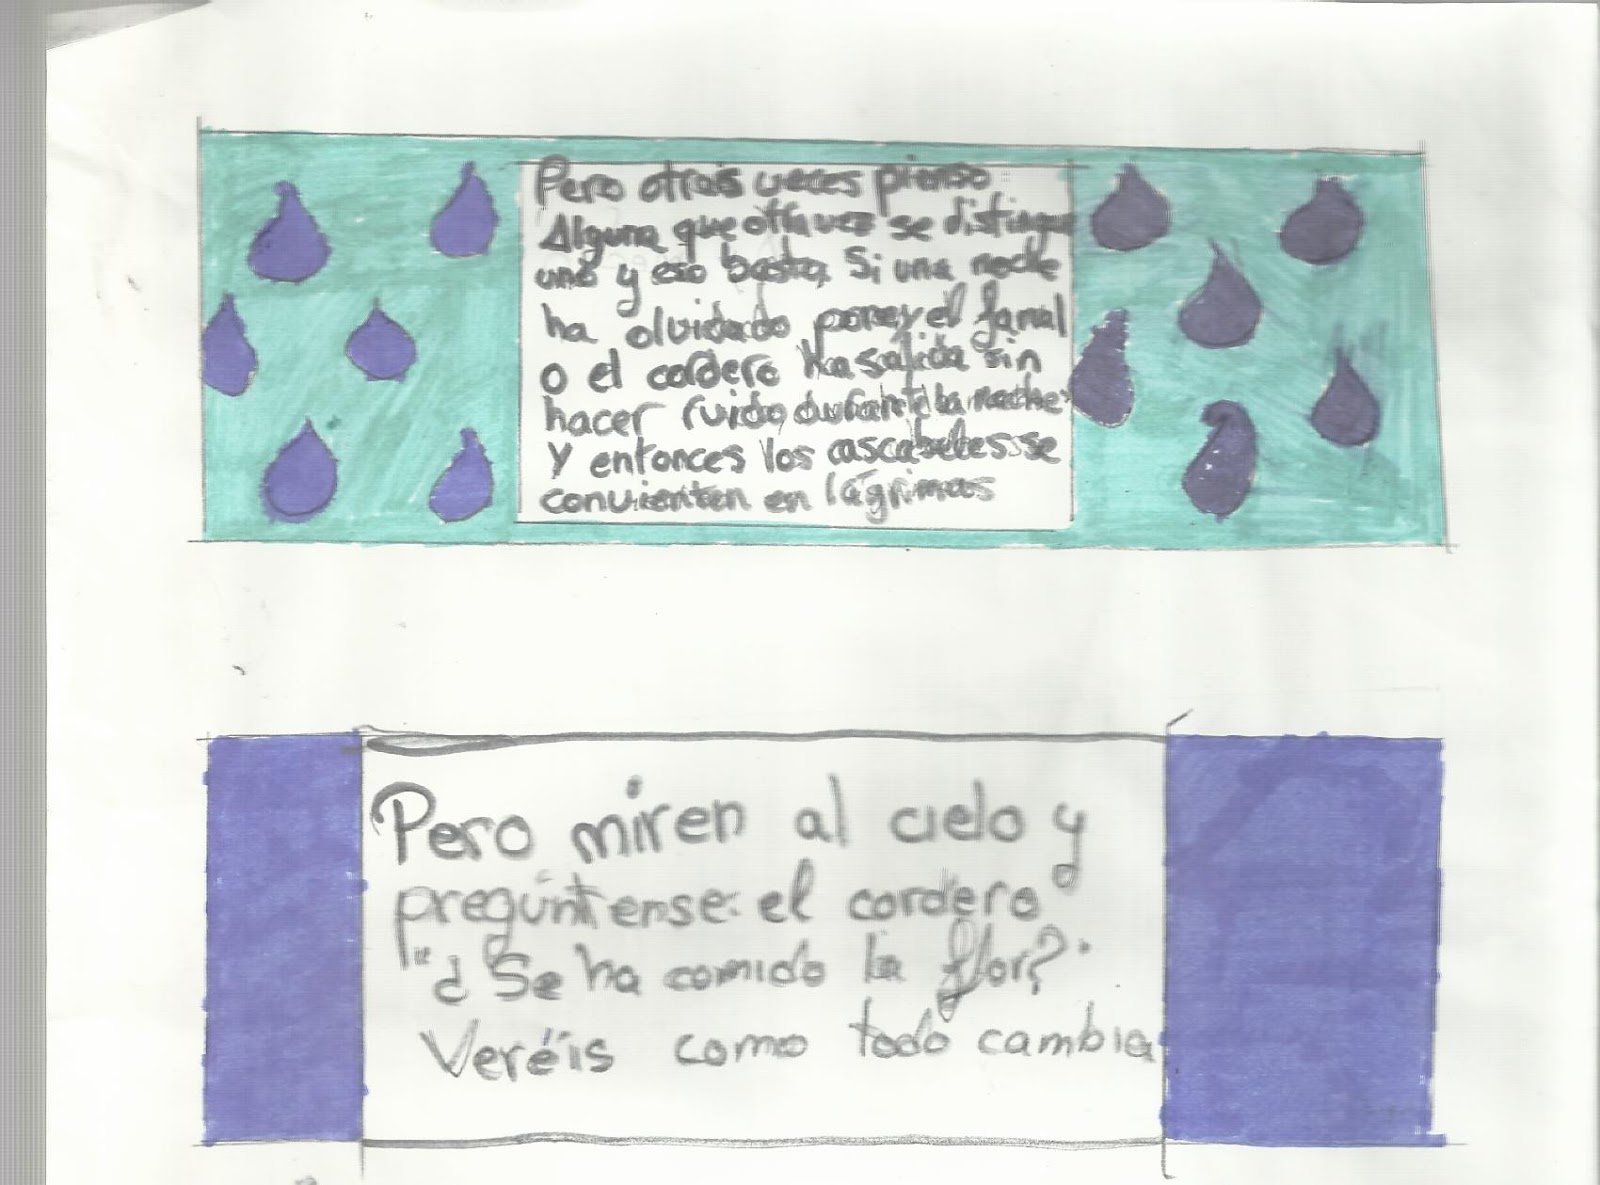 Pero otras veces pienso
Alguna que otra vez se distingue
uno y eso basta. Si una noche
ha olvidado poner el fanal
o el cordero ha salido sin
hacer ruido durante la noche
Y entonces los cascabeles se
convierten en lágrimas
Pero miren al cielo y
pregúntense: el cordero
"¿Se ha comido la flor?"
Veréis como todo cambia